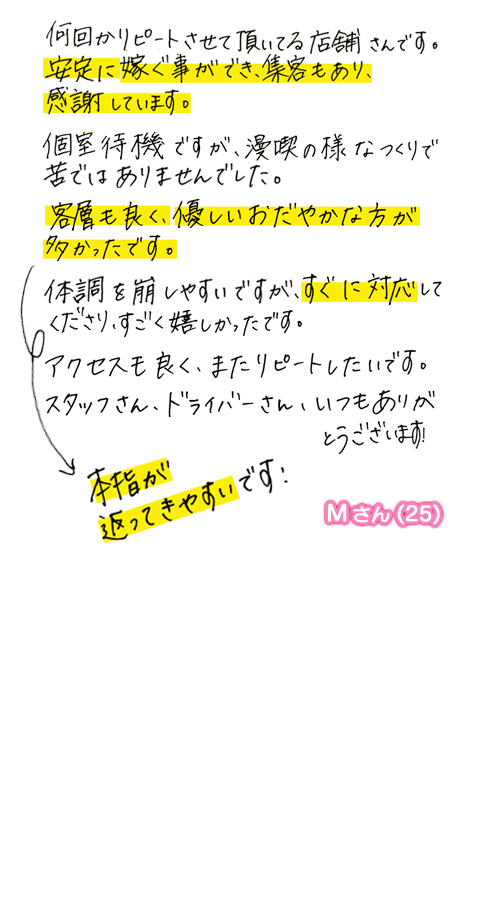 何回かリピートさせて頂いてる店舗さんです。
安定に嫁ぐ事ができ、集客もあり、
感謝しています。
個室待機ですが、漫喫の様なつくりで
苦ではありませんでした。
客層も良く、優しいおだやかな方が
多かったです。
体調を崩しやすいですが、すぐに対応して
くださり、すごく嬉しかったです。
アクセスも良く、またリピートしたいです。
スタッフさん、ドライバーさん、いつもありが
とうございます!
本指が
返ってきやすいです!
Mさん(25)